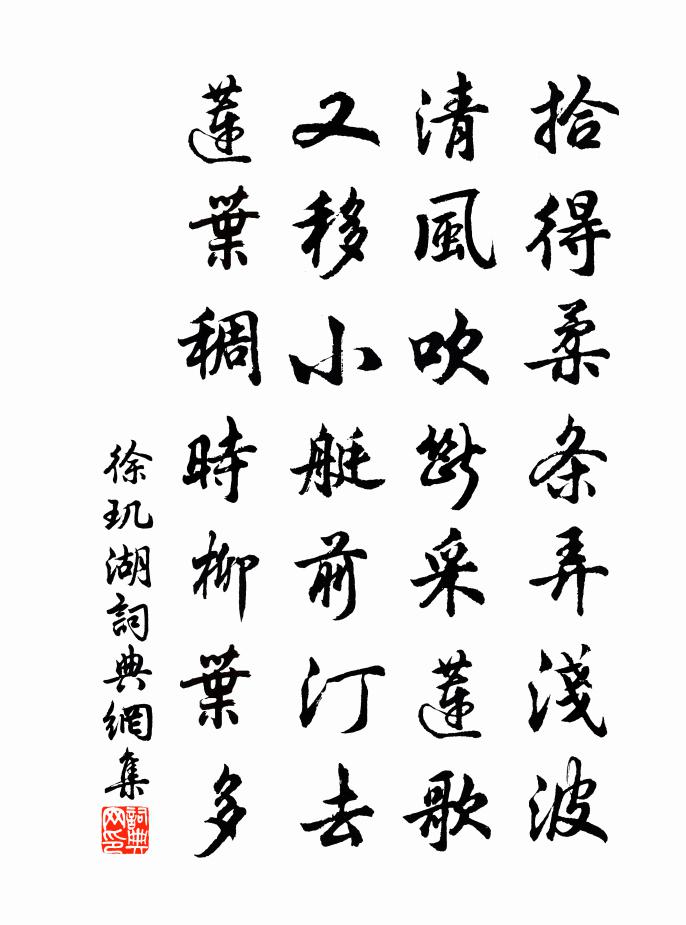 拾得柔条弄淺波
清風吹斷采蓮歌
又移小艇前汀去
蓮葉稠時柳葉多
徐玑湖詞典網集
詞典
网印